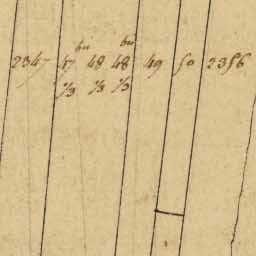 bis bis
2347 47 48 48 49 50 2356
1/3 1/3 1/3